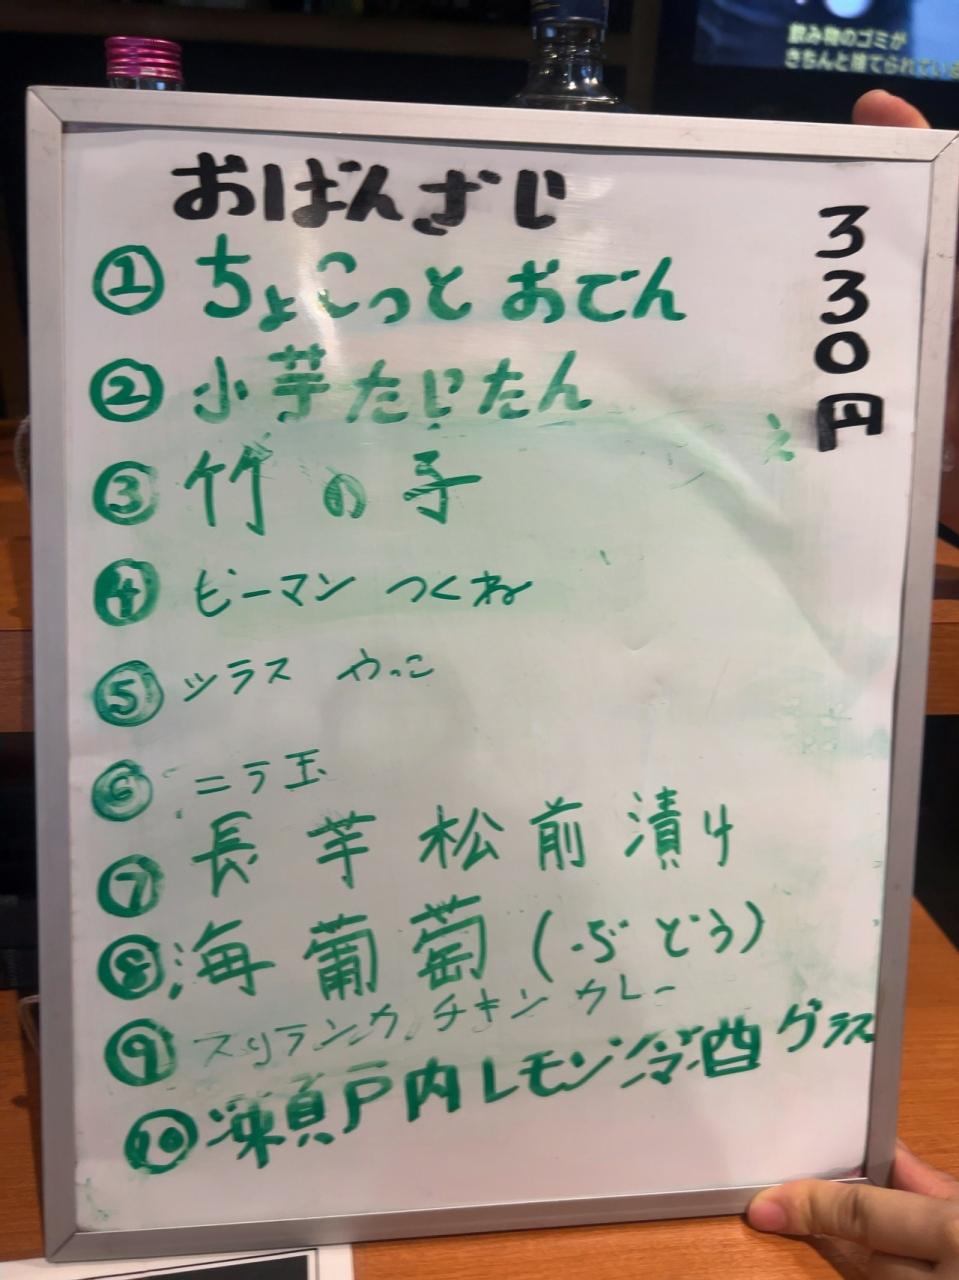 飲み物のゴミが
きちんと捨てられている
おばんざい
330円
① ちょこっと おでん
② 小芋たいたん
③ 竹の子
④ ピーマン つくね
⑤ シラス やっこ
⑥ ニラ玉
⑦ 長芋松前漬け
⑧ 海葡萄(ぶどう)
⑨ スリランカ チキン カレー
⑩ 瀬戸内レモン冷酒 グラス